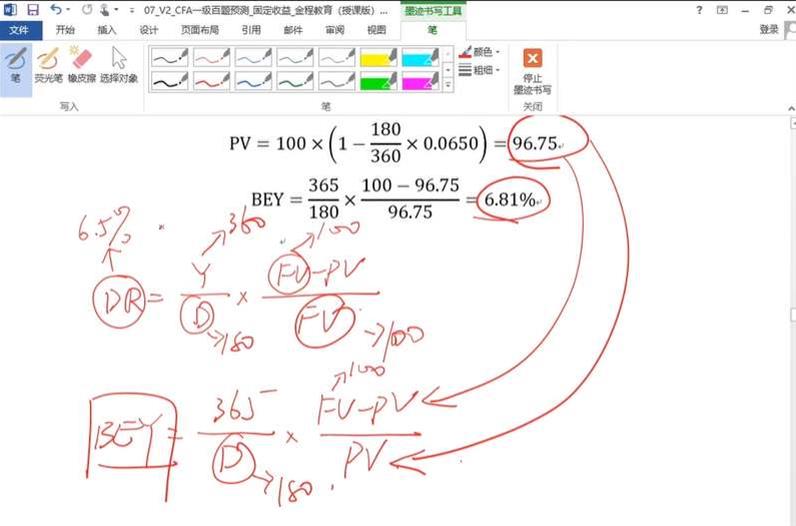 07_V2_CFA一级百题预测_固定收益_金程教育（授课版）...
墨迹书写工具
? 
文件 开始 插入 设计 页面布局 引用 邮件 审阅 视图 笔 登录
笔 荧光笔 橡皮擦 选择对象
颜色
粗细
停止
墨迹书写
写入 笔 关闭
PV = 100 × (1 − 180/360 × 0.0650) = 96.75
BEY = 365/180 × (100 − 96.75)/96.75 = 6.81%
6.5% 360 100
DR = Y/D × (FV-PV)/FV
180 100
100
BEY = 365/D × (FV-PV)/PV
180